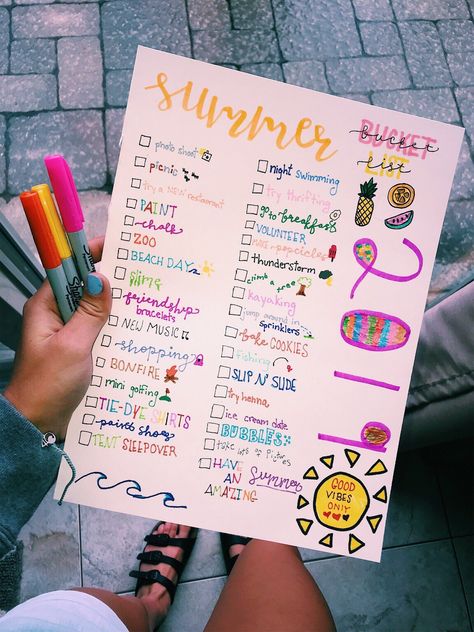 summer
BUCKET
bucket
LIST
list
photo shoot
picnic
try a NEW restaurant
PAINT
chalk
ZOO
BEACH DAY
slime
friendship
bracelets
NEW MUSIC
shopping
BONFIRE
mini golfing
TIE-DYE SHIRTS
paint shoes
TENT SLEEPOVER
night swimming
try thrifting
go to breakfast
VOLUNTEER
MAKE popcicles
thunderstorm
climb a tree
kayaking
jump around in
sprinklers
bake COOKIES
fishing
SLIP N' SLIDE
try henna
ice cream date
BUBBLES
take lots of pictures
HAVE
AN Summer
AMAZING
GOOD
VIBES
ONLY
Sharpie